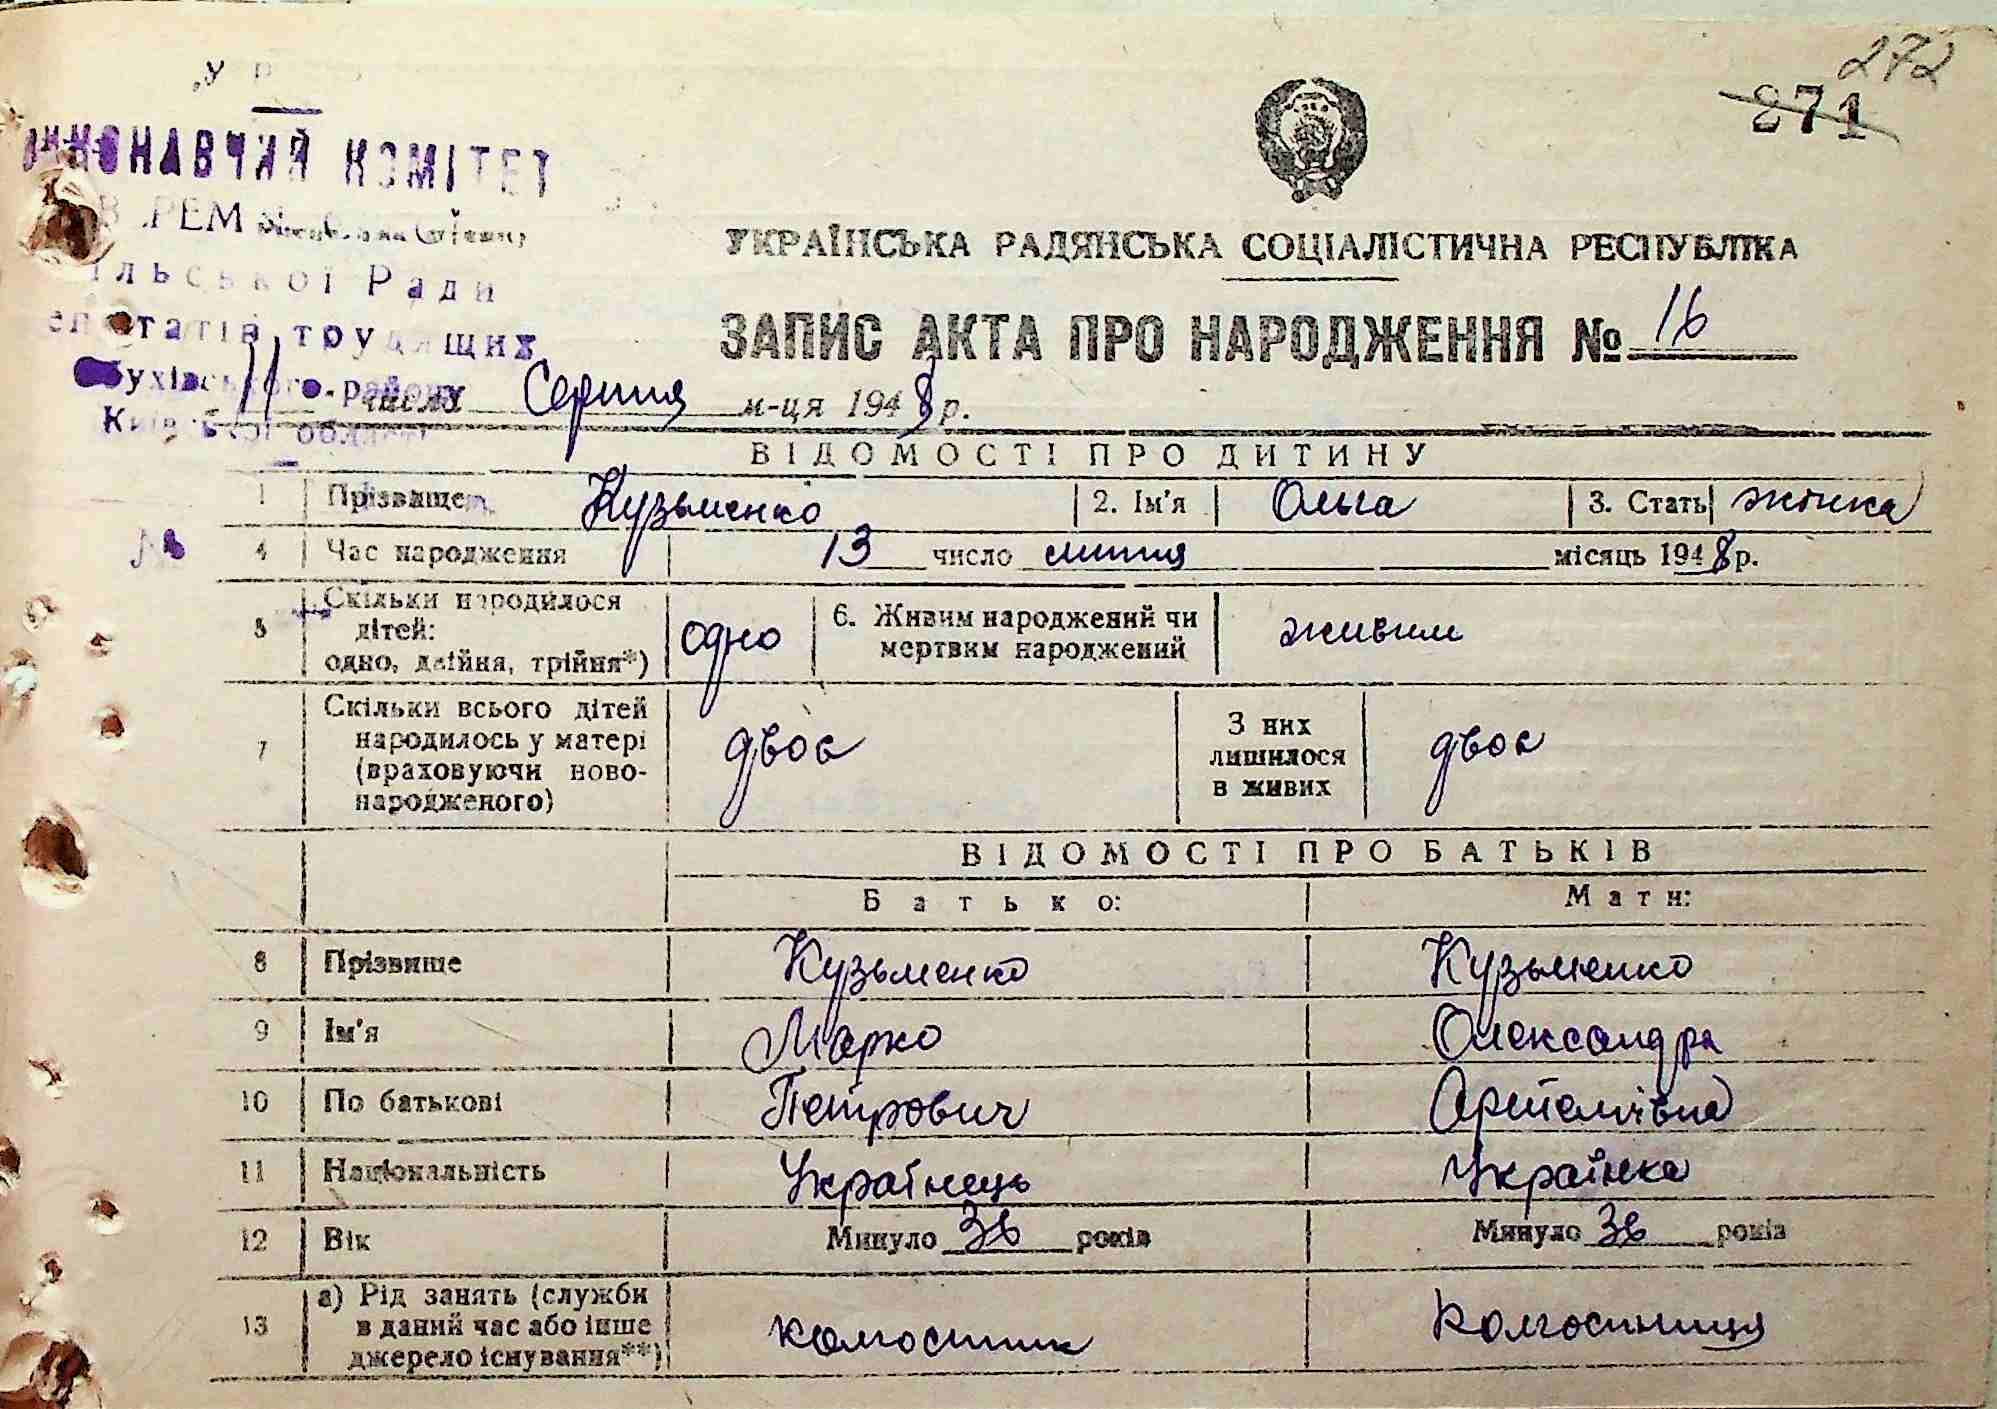 272
271
ВИКОНАВЧИЙ КОМІТЕТ
УКРАЇНСЬКА РАДЯНСЬКА СОЦІАЛІСТИЧНА РЕСПУБЛІКА
сільської Ради
депутатів трудящих
ЗАПИС АКТА ПРО НАРОДЖЕННЯ № 16
Обухівського району
11 числа Серпня м-ця 1948 р.
Київської області
ВІДОМОСТІ ПРО ДИТИНУ
1 Прізвище Кузьменко 2. Ім'я Ольга 3. Стать жінка
4 Час народження 13 число липня місяць 1948 р.
5 Скільки народилося дітей: одно, двійня, трійня*) одно 6. Живим народжений чи мертвим народжений живим
7 Скільки всього дітей народилось у матері (враховуючи новонародженого) двоє З них лишилося в живих двоє
ВІДОМОСТІ ПРО БАТЬКІВ
Батько: Мати:
8 Прізвище Кузьменко Кузьменко
9 Ім'я Марко Олександра
10 По батькові Петрович Артемівна
11 Національність Українець Українка
12 Вік Минуло 36 років Минуло 36 років
13 а) Рід занять (служби в даний час або інше джерело існування**) колгоспник Колгоспниця